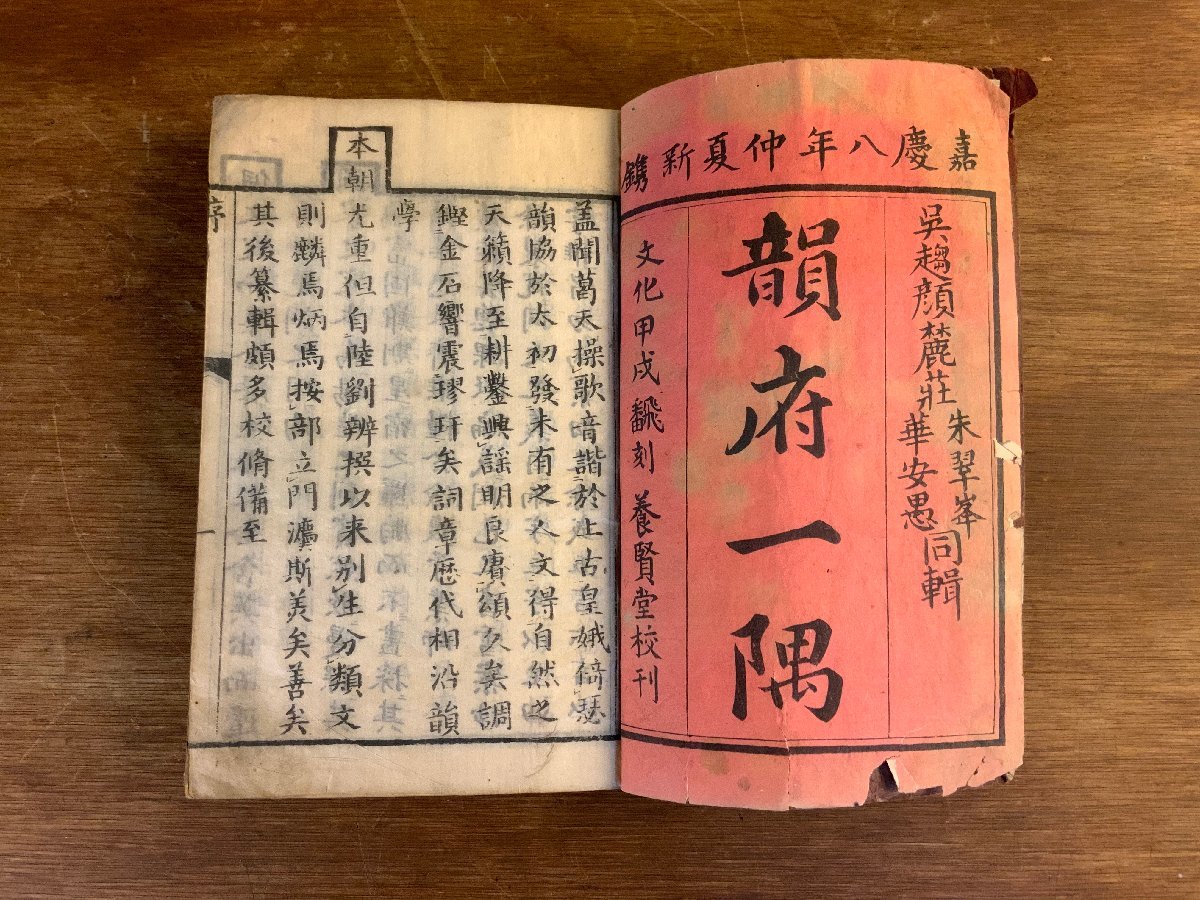 嘉慶八年仲夏新鐫
吳趨顔麓莊
朱翠峯
華安愚
同輯
韻府一隅
文化甲戌飜刻 養賢堂校刊
本朝
蓋聞葛天操歌音諧於上古皇娥倚瑟
韻協於太初發未有之人文得自然之
天籟降至耕鑿興謡明良賡頌久矣調
鏗金石響震璆玕矣詞章歴代相沿韻
學
尤重但自陸劉辨撰以来别生分類文
則麟焉炳焉按部立門灋斯美矣善矣
其後纂輯頗多校脩備至
序
一